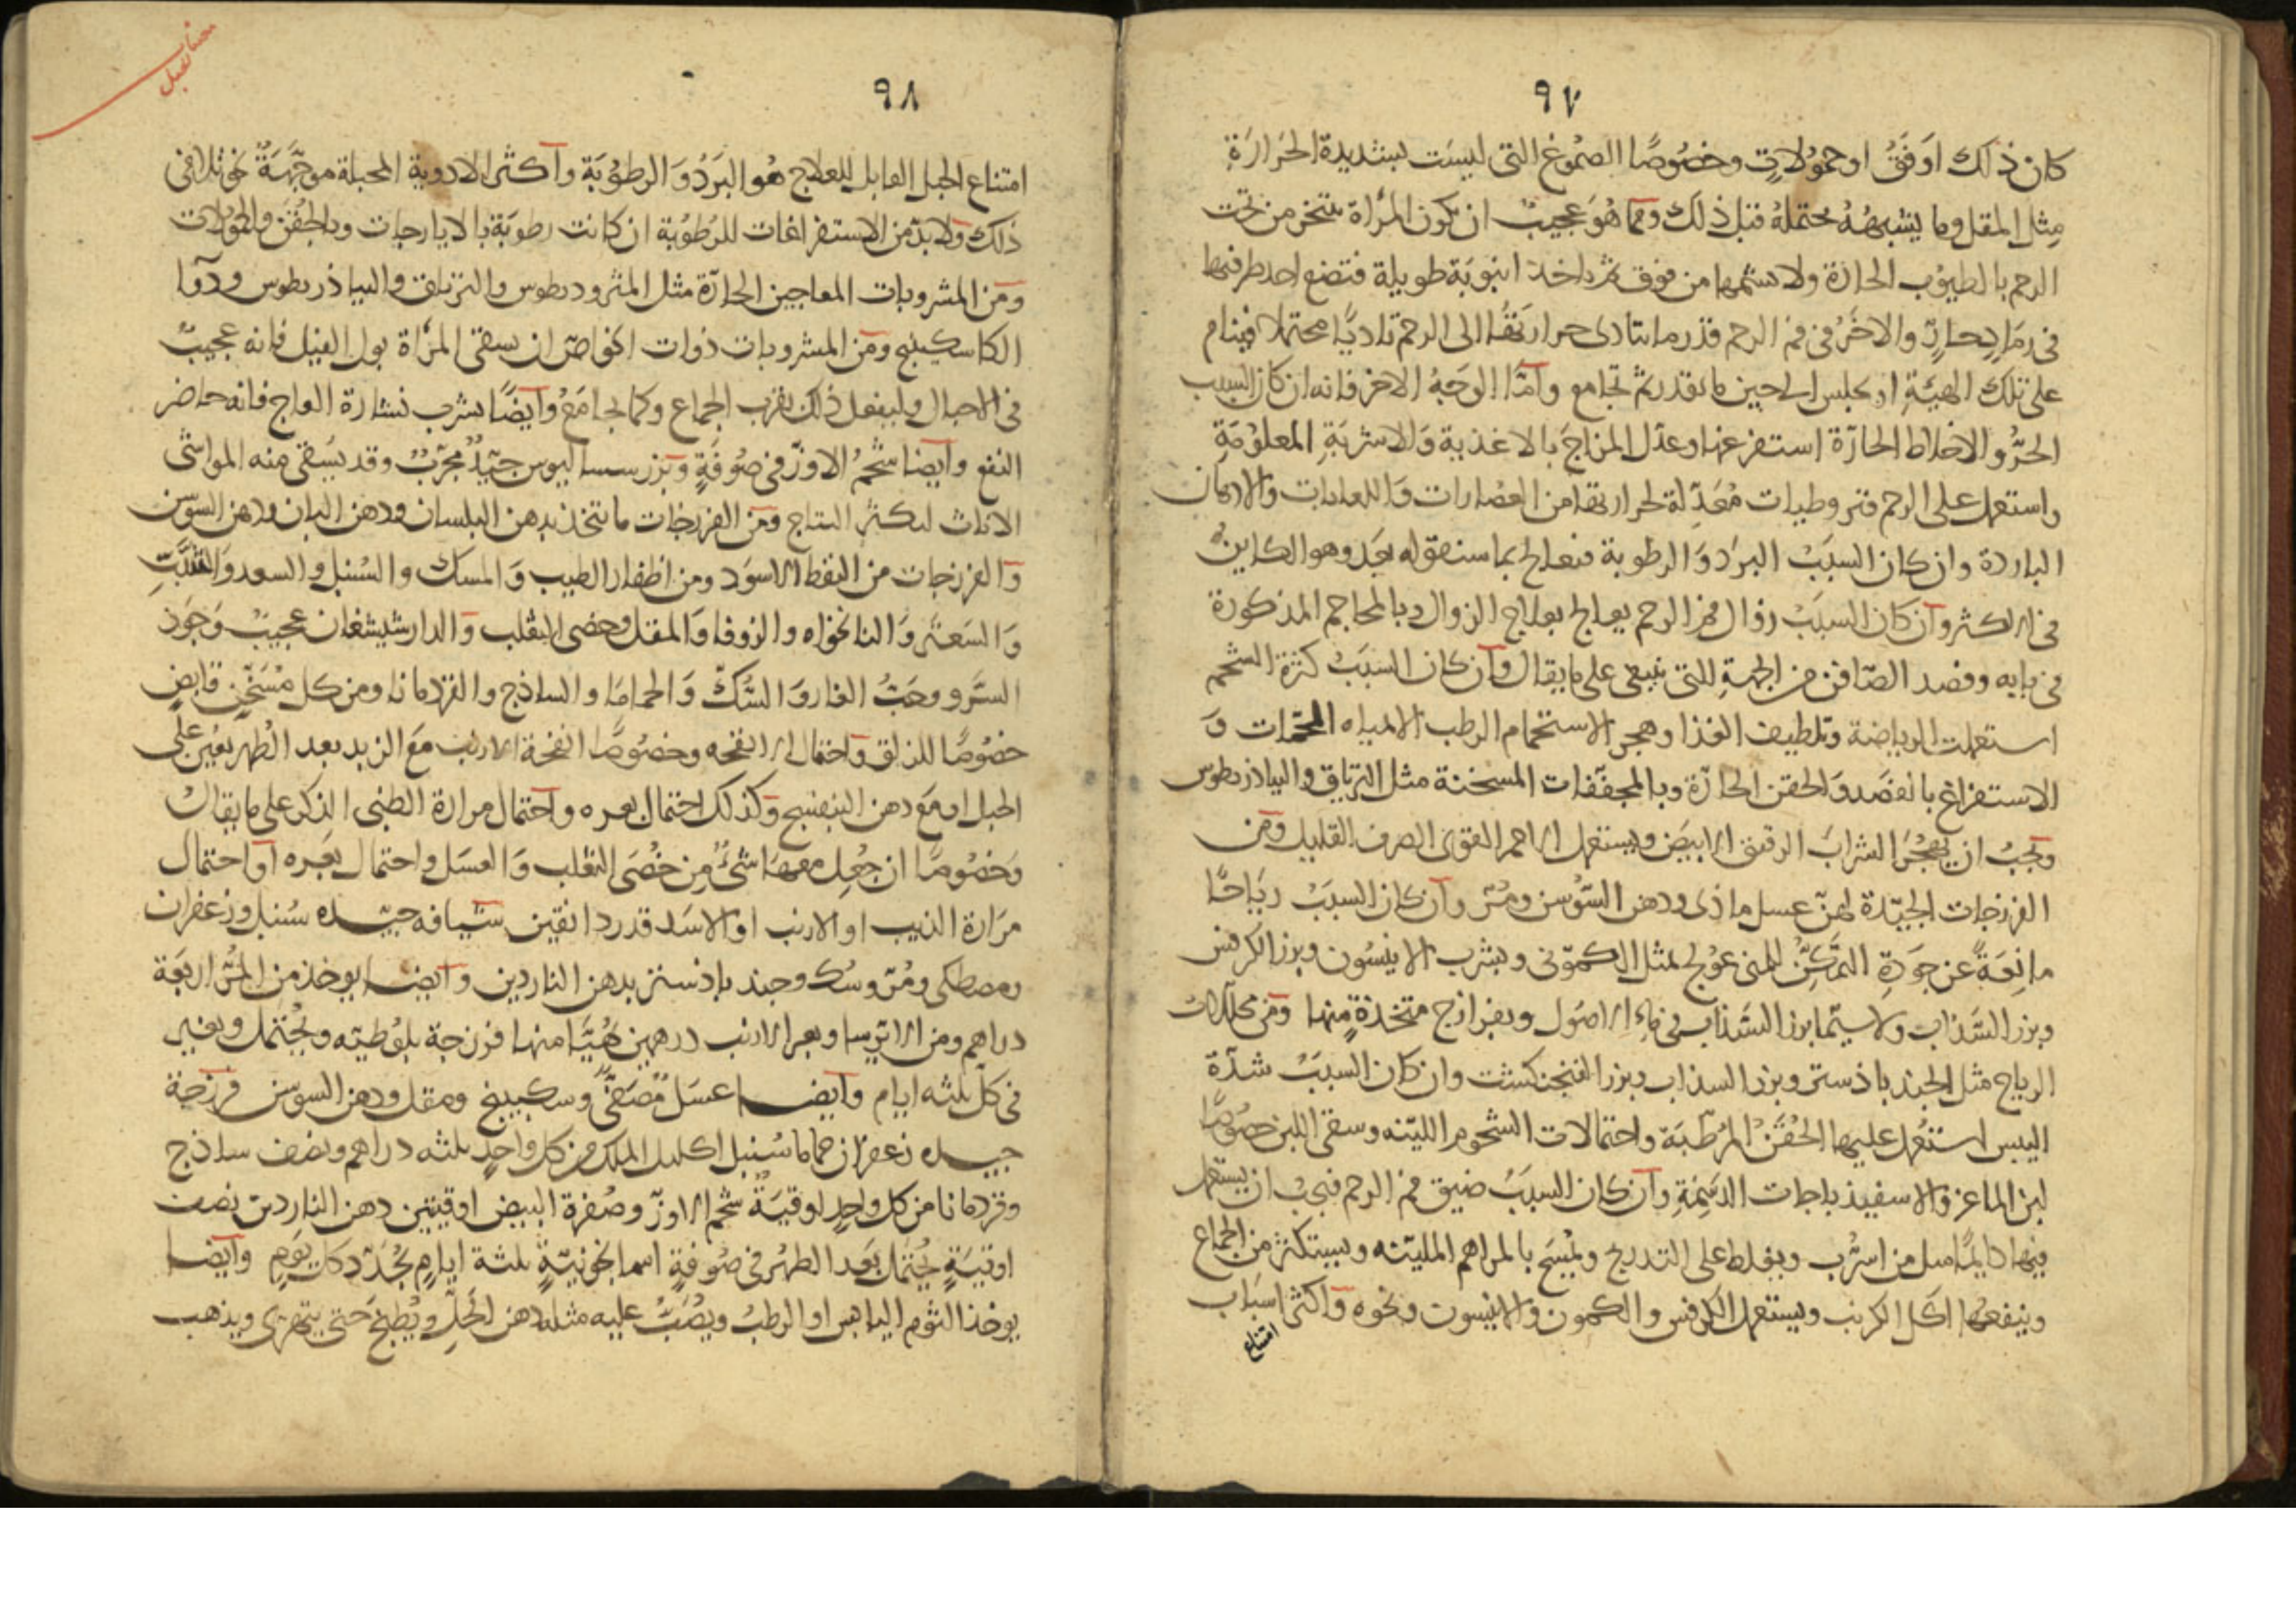 ٩٧
كان ذلك اوفق او حمولات وخصوصًا الصموغ التي ليست بشديدة الحرارة
مثل المقل وما يشبهه محتملة قبل ذلك ومما هو عجيب ان تكون المرأة تتبخر من تحت
الرحم بالطيوب الحارة ولا تشمها من فوق ثم تاخذ انبوبة طويلة فتضع احد طرفيها
في رماد حار والاخر في فم الرحم قدر ما تتادى حرارتها الى الرحم تاديًا محتملا فينام
على تلك الهيئة او تجلس الى حين ما تقدر ثم تجامع وامّا الوجه الاخر فانه ان كان السبب
الحر والاخلاط الحارة استفرغها وعدل المزاج بالاغذية والاشربة المعلومة
واستعمل على الرحم قيروطيات معدلة لحرارتها من العصارات واللعابات والادهان
الباردة وان كان السبب البرد والرطوبة فيعالج بما سنقوله بعد وهو الكاين
في الاكثر وان كان السبب زوال فم الرحم يعالج بعلاج الزوال وبالمحاجم المذكورة
في بابه وفصد الصافن من الجهة التي ينبغي على ما يقال وان كان السبب كثرة الشحم
استعملت الرياضة وتلطيف الغذا وهجر الاستحمام الرطب الا بمياه الحمات و
الاستفراغ بالفصد والحقن الحارة وبالمجففات المسخنة مثل الترياق والبياذريطوس
ويجب ان يهجر الشراب الرقيق الابيض ويستعمل الاحمر القوى الصرف القليل ومن
الفرزجات الجيّدة لهنّ عسل ماذى ودهن السوسن ومرّ وان كان السبب رياحًا
مانعة عن جودة التمكن للمنى عولج بمثل الكمونى وبشرب الانيسون وبزر الكرفس
وبزر السذاب ولا سيّما بزر السذاب في ماء الاصول وبفرازج متخذة منها ومن محللات
الرياح مثل الجندباذستر وبزر السذاب وبزر الفنجنكشت وان كان السبب شدّة
اليبس استعمل عليها الحقن المرطّبة واحتمالات الشحوم الليّنه وسقى اللبن خصوصًا
لبن الماعز والاسفيذباجات الدسمة وان كان السبب ضيق فم الرحم فيجب ان يستعمل
فيها دايمًا ميل من اسرب ويغلظ على التدريج ويمسح بالمراهم المليّنه ويستكثر من الجماع
وينفعها اكل الكرنب ويستعمل الكرفس والكمون والانيسون ونحوه واكثر اسباب
امتناع
٩٨
امتناع الحبل القابل للعلاج هو البرد والرطوبة واكثر الادوية المحبلة موجّهة نحو تلافى
ذلك ولا بدّ من الاستفراغات للرطوبة ان كانت رطوبة بالايارجات وبالحقن والحمولات
ومن المشروبات المعاجين الحارّة مثل المثروديطوس والترياق والبياذريطوس ودوا
الكاسكبينج ومن المشروبات ذوات الخواصّ ان يسقى المرأة بول الفيل فانه عجيب
في الاحبال وليفعل ذلك بقرب الجماع وكما يجامع وايضًا يشرب نشارة العاج فانه حاضر
النفع وايضا شحم الاوزّ في صوفة وبزر سساليوس جيّد مجرّب وقد يسقى منه المواشى
الاناث ليكثر النتاج ومن الفرزجات ما تتخذ بدهن البلسان ودهن البان ودهن السوسن
والفرزجات من النفط الاسود ومن اظفار الطيب والمسك والسنبل والسعد والشبت
والسعتر والنانخواه والزوفا والمقل وخصى الثعلب والدارشيشغان عجيب وجوز
السرو وحبّ الغار والسّك والحماما والساذج والقردمانا ومن كل مسخّن قابض
خصوصًا للزلق واحتمال الانفحه وخصوصًا انفحة الارنب مع الزبد بعد الطهر يعين على
الحبل او مع دهن البنفسج وكذلك احتمال بعره واحتمال مرارة الظبى الذكر على ما يقال
وخصوصًا ان جعل معها شئ من خصى الثعلب والعسل واحتمال بعره او احتمال
مرارة الذيب او الارنب او الاسد قدر دانقين شيافه جيّده سنبل وزعفران
ومصطكى ومرّ وسك وجندباذستر بدهن الناردين وايضا يوخذ من المرّ اربعة
دراهم ومن الايرسا وبعر الارنب درهمين يهيّا منها فرزجة بلوطيّه ويحتمل ويغير
في كلّ ثلثه ايام وايضا عسل مصفّى وسكبينج ومقل ودهن السوسن فرزجة
جيده زعفران حماما سنبل اكليل الملك من كل واحدٍ ثلثه دراهم ونصف ساذج
وقردمانا من كل واحدٍ اوقيّة شحم الاوزّ وصفرة البيض اوقيتين دهن الناردين نصف
اوقيّة يحتمل بعد الطهر في صوفة اسمانجونيّة ثلثة ايام يجدّد كل يوم وايضا
يوخذ الثوم اليابس او الرطب ويصبّ عليه مثله دهن الحلّ ويطبخ حتى يتهرى ويذهب